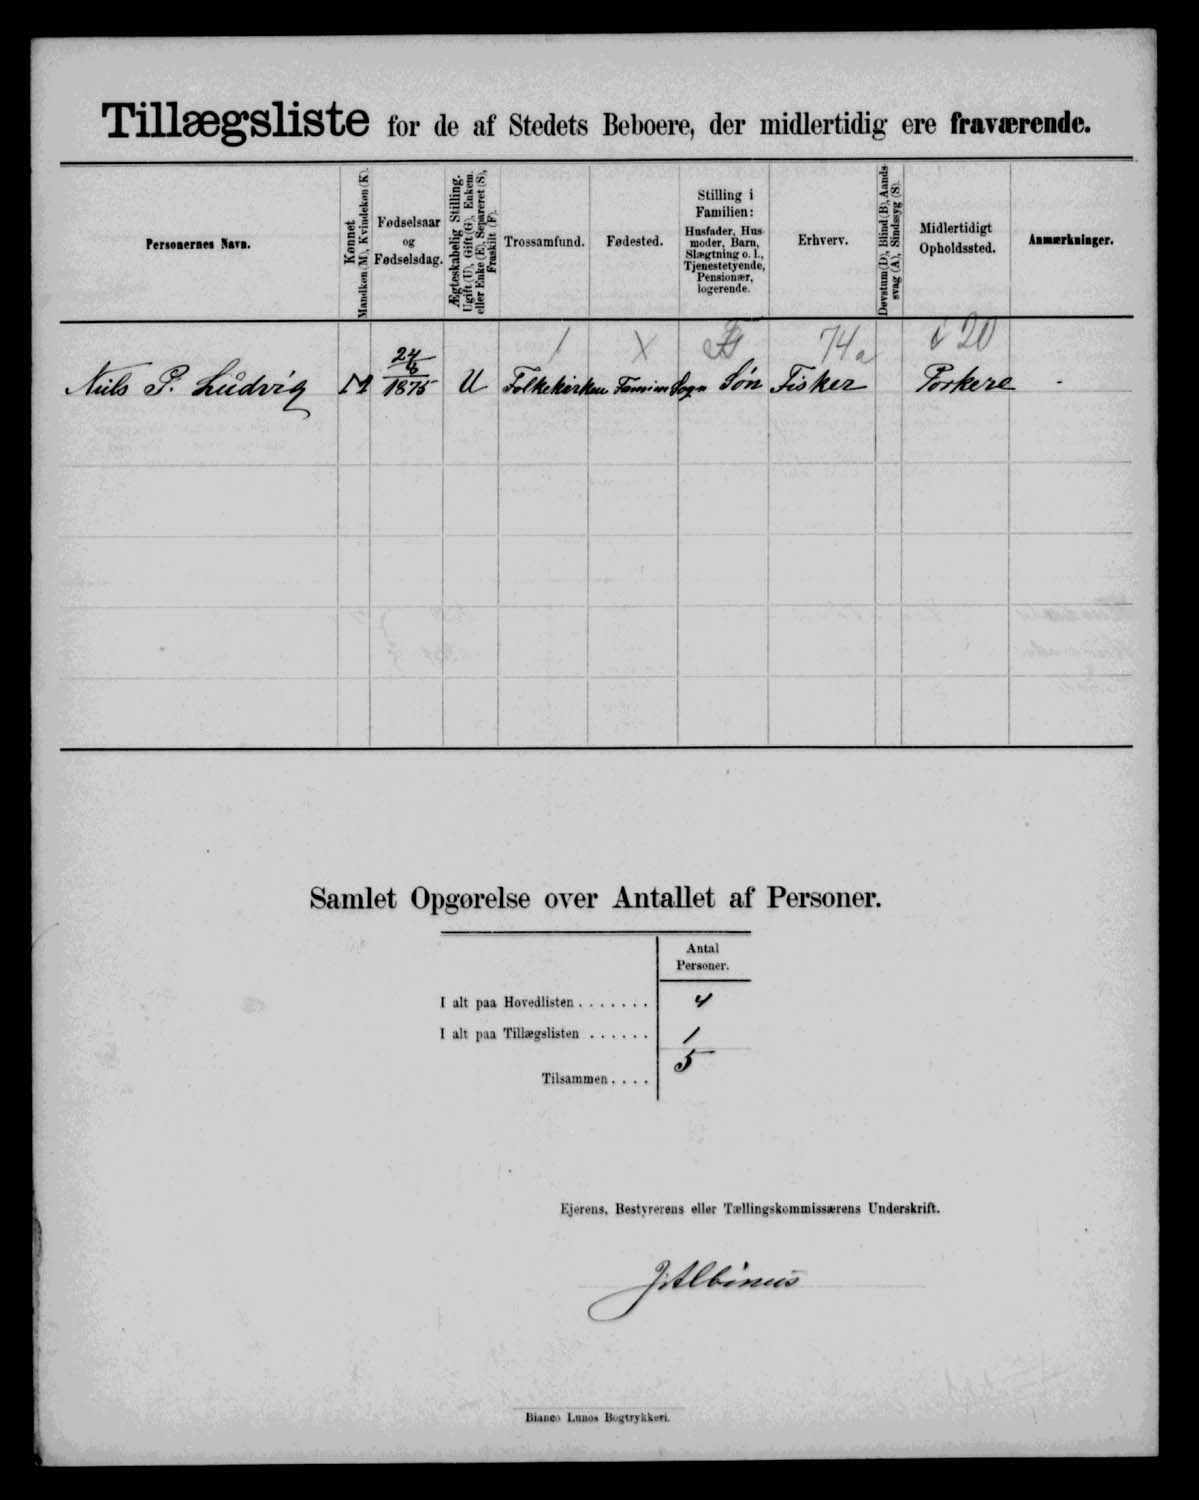 Tillægsliste for de af Stedets Beboere, der midlertidig ere fraværende.
Personernes Navn.
Kønnet
Mandkøn (M), Kvindekøn (K).
Fødselsaar
og
Fødselsdag.
Ægteskabelig Stilling.
Ugift (U), Gift (G), Enkem.
eller Enke (E), Separeret (S),
Fraskilt (F).
Trossamfund.
Fødested.
Stilling i
Familien:
Husfader, Hus-
moder, Barn,
Slægtning o. l.,
Tjenestetyende,
Pensionær,
logerende.
Erhverv.
Døvstum (D), Blind (B), Aands-
svag (A), Sindssyg (S).
Midlertidigt
Opholdssted.
Anmærkninger.
/ X 74a 20
Niels P. Ludvig M 24/6 1875 U Folkekirken Famien Sogn Søn Fisker Porkere -
Samlet Opgørelse over Antallet af Personer.
Antal
Personer.
I alt paa Hovedlisten . . . . . . . 4
I alt paa Tillægslisten . . . . . . 1
Tilsammen . . . . 5
Ejerens, Bestyrerens eller Tællingskommissærens Underskrift.
J. Albinus
Bianco Lunos Bogtrykkeri.